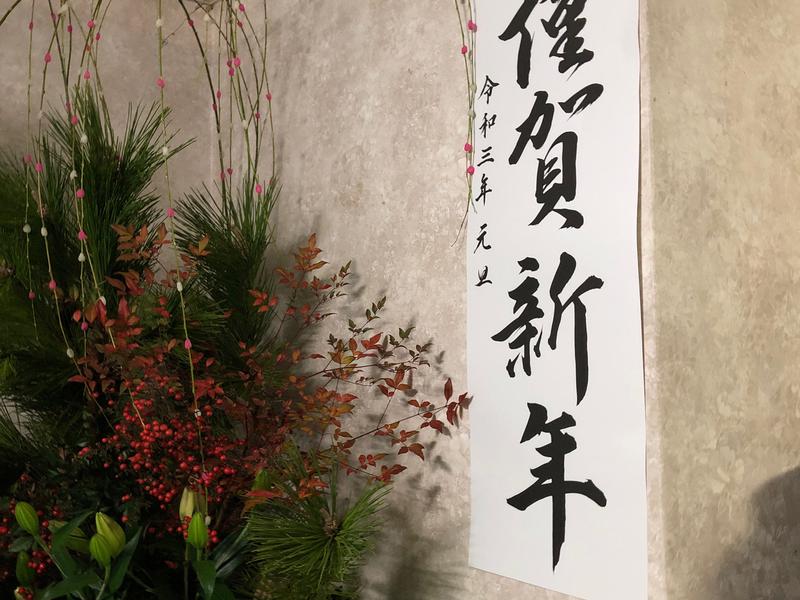 謹賀新年
令和三年 元旦